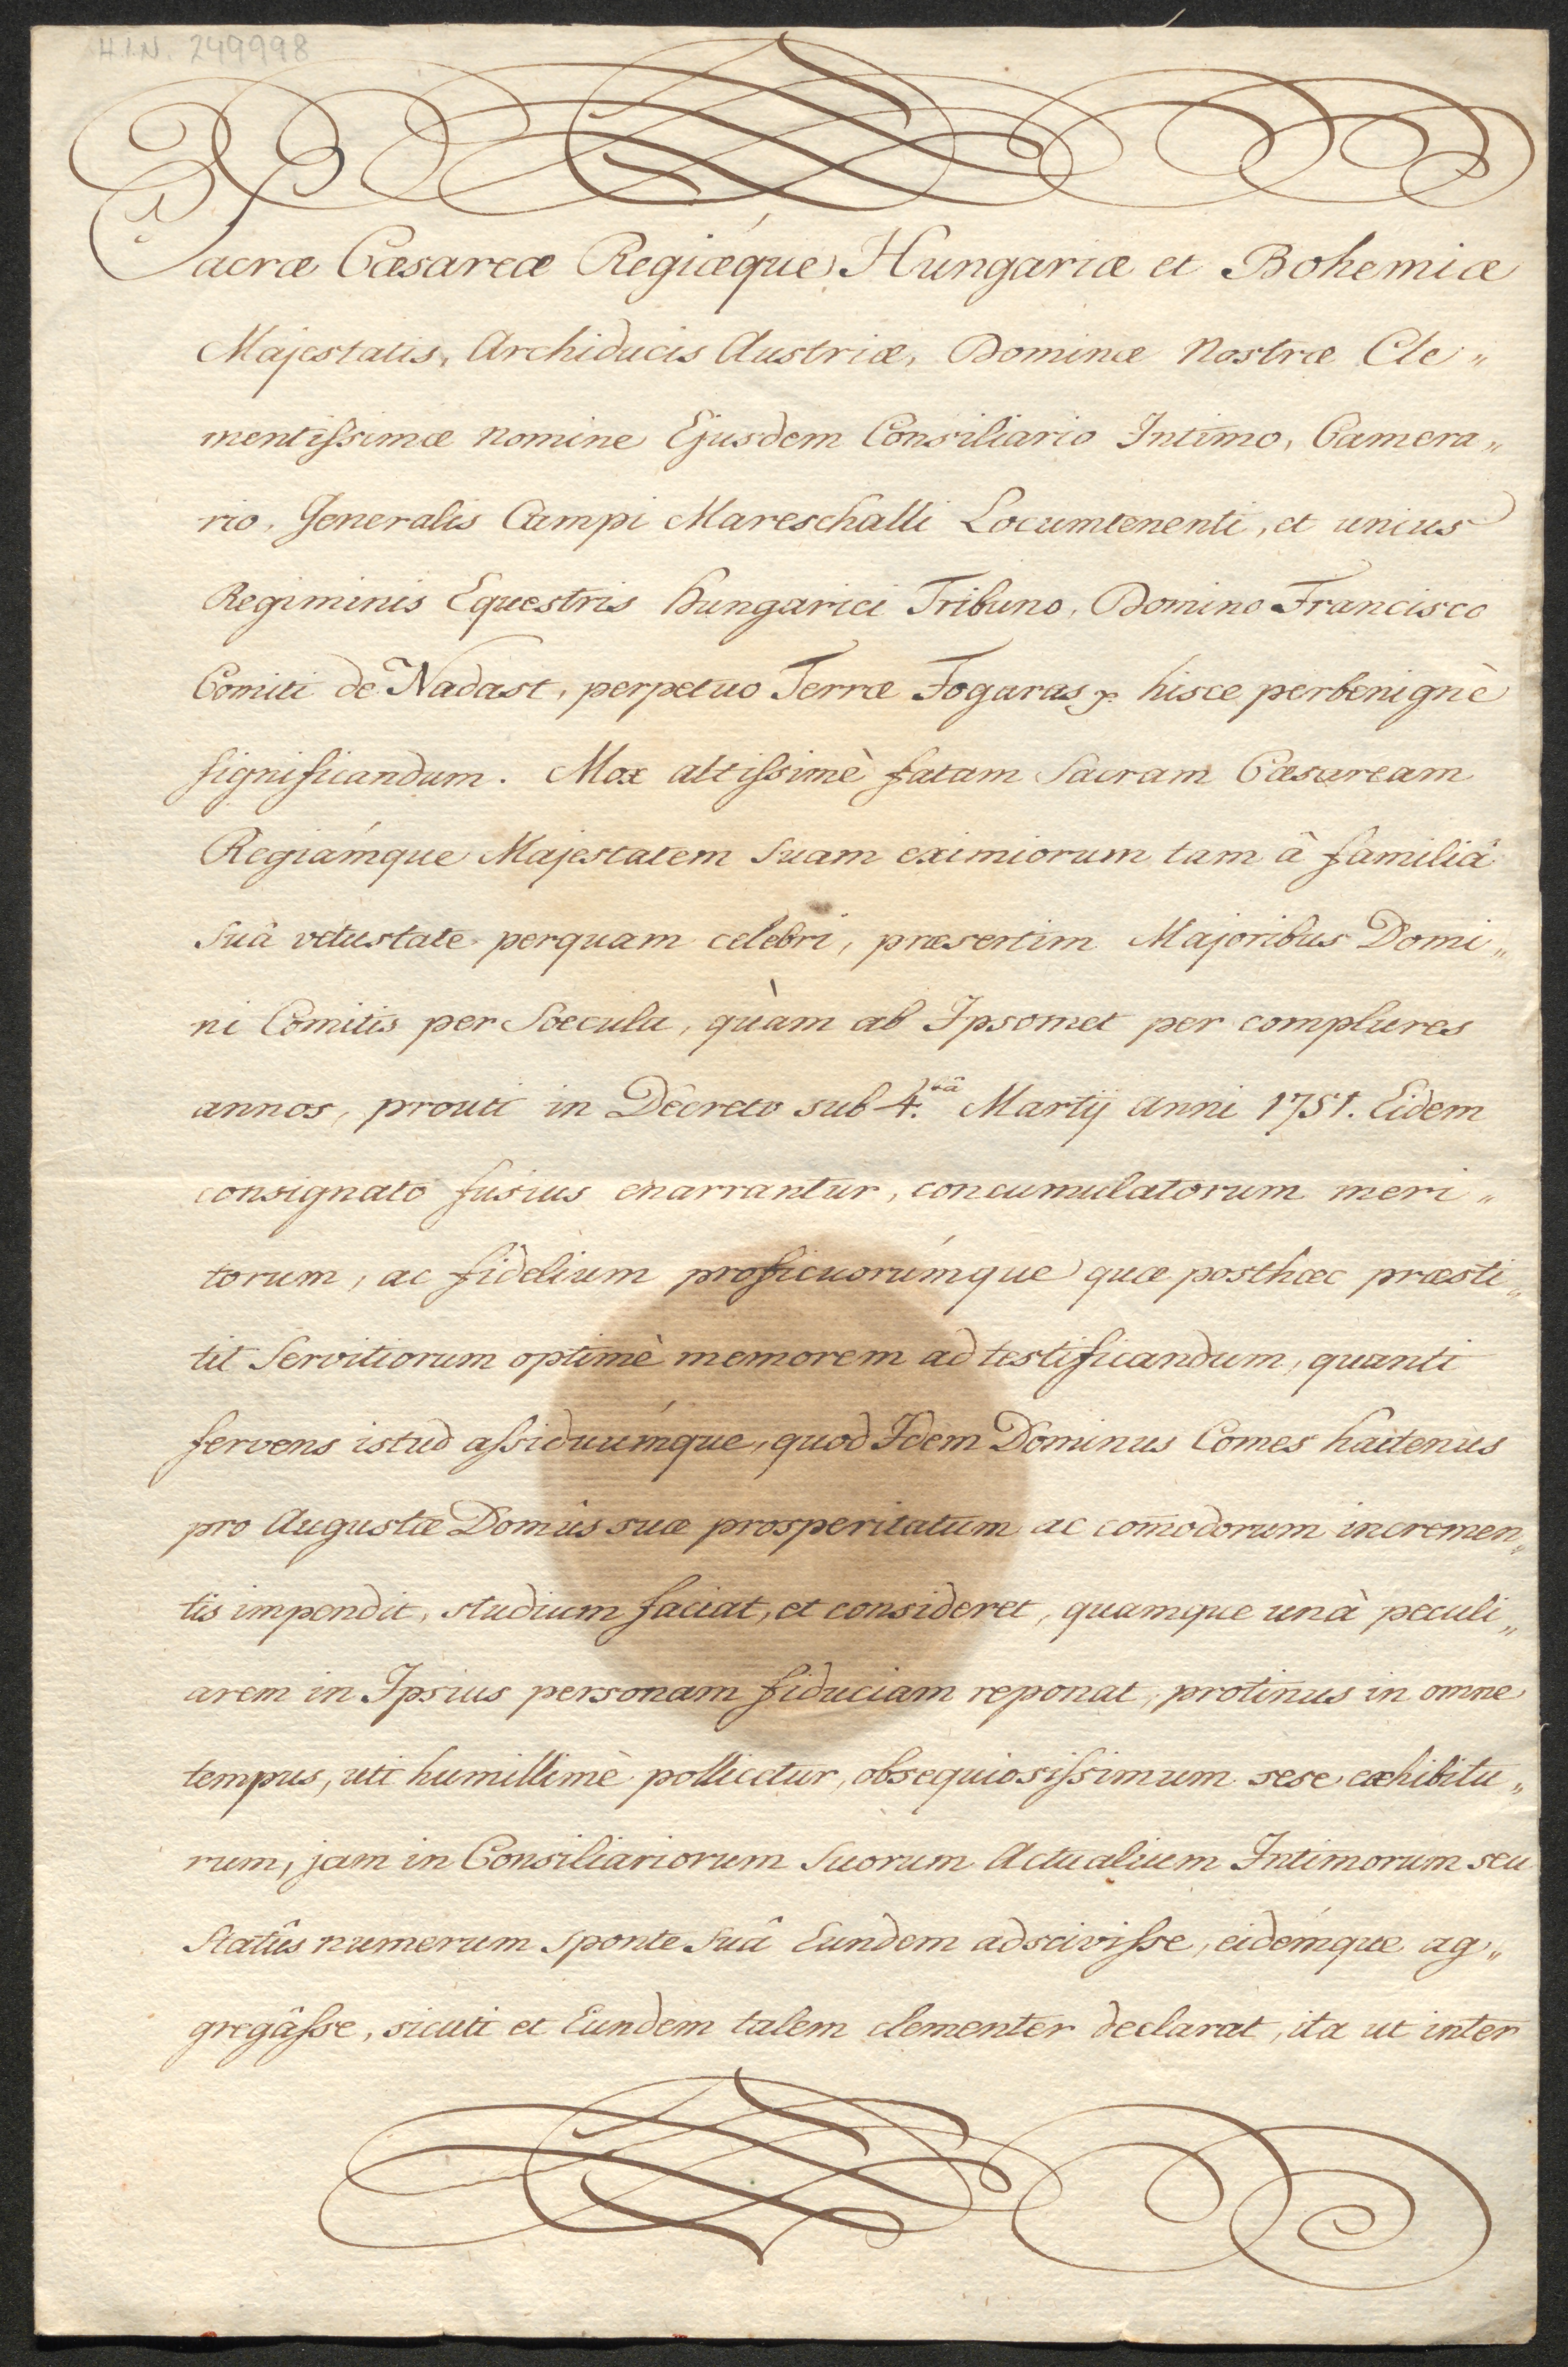 H.I.N. 249998
Sacræ Cæsareæ Regiæque Hungariæ et Bohemiæ
Majestatis, Archiducis Austriæ, Dominæ Nostræ Cle„
mentiſsimæ nomine Ejusdem Consiliario Intimo, Camera„
rio, Generalis Campi Mareschalli Locumtenenti, et unius
Regiminis Equestris Hungarici Tribuno, Domino Francisco
Comiti de Nadast, perpetuo Terræ Fogaras hisce perbenignè
ſignificandum. Mox altiſsimè fatam Sacram Cæsaream
Regiámque Majestatem Suam eximiorum tam â familiâ
Suâ vetustate perquam celebri, præsertim Majoribus Domi„
ni Comitis per Sœcula, quàm ab Ipsomet per complures
annos, prouti in Decreto sub 4.tâ Martij Anni 1751. Eidem
consignato fusius enarrantur, concumulatorum meri„
torum, ac fidelium proficuorúmque quæ posthæc præsti„
tit Servitiorum optimè memorem ad testificandum, quanti
fervens istud aſsiduúmque, quod Idem Dominus Comes hactenus
pro Augustæ Domûs suæ prosperitatum ac com̃odorum incremen„
tis impendit, studium faciat, et consideret, quamque unà peculi„
arem in Ipsius personam fiduciam reponat, protinus in omne
tempus, uti humillimè pollicetur, obsequiosiſsimum sese exhibitu„
rum, jam in Consiliariorum Suorum Actualium Intimorum seu
Statûs numerum sponte Suâ Eundem adsciviſse, eidémque ag„
gregâſse, sicuti et Eundem talem clementer declarat, ita ut inter